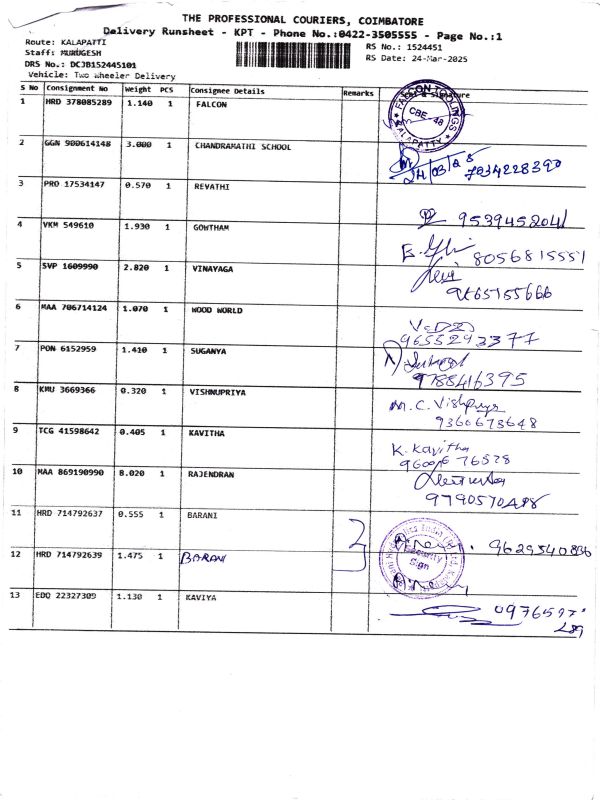 THE PROFESSIONAL COURIERS, COIMBATORE
Delivery Runsheet - KPT - Phone No.:0422-3505555 - Page No.:1
Route: KALAPATTI
RS No.: 1524451
Staff: MURUGESH
RS Date: 24-Mar-2025
DRS No.: DCJB152445101
Vehicle: Two Wheeler Delivery
S No Consignment No Weight PCS Consignee Details Remarks Signature
1 HRD 378085289 1.140 1 FALCON
FALCON TOOLINGS CBE-48 KALAPATTY
2 GGN 900614148 3.000 1 CHANDRAMATHI SCHOOL
24/03/25 7034228390
3 PRO 17534147 0.570 1 REVATHI
9539452041
4 VKM 549610 1.930 1 GOWTHAM
8056815551
5 SVP 1609990 2.820 1 VINAYAGA
9865155666
6 MAA 706714124 1.070 1 WOOD WORLD
9655292377
7 PON 6152959 1.410 1 SUGANYA
9788416395
8 KMU 3669366 0.320 1 VISHNUPRIYA
M.C. Vishpriya
9360673648
9 TCG 41598642 0.405 1 KAVITHA
K. Kavitha
9600676528
10 MAA 869190990 8.020 1 RAJENDRAN
9790570498
11 HRD 714792637 0.555 1 BARANI
9629540836
12 HRD 714792639 1.475 1 BARANI
Security Sign
13 EDQ 22327309 1.130 1 KAVIYA
0976597